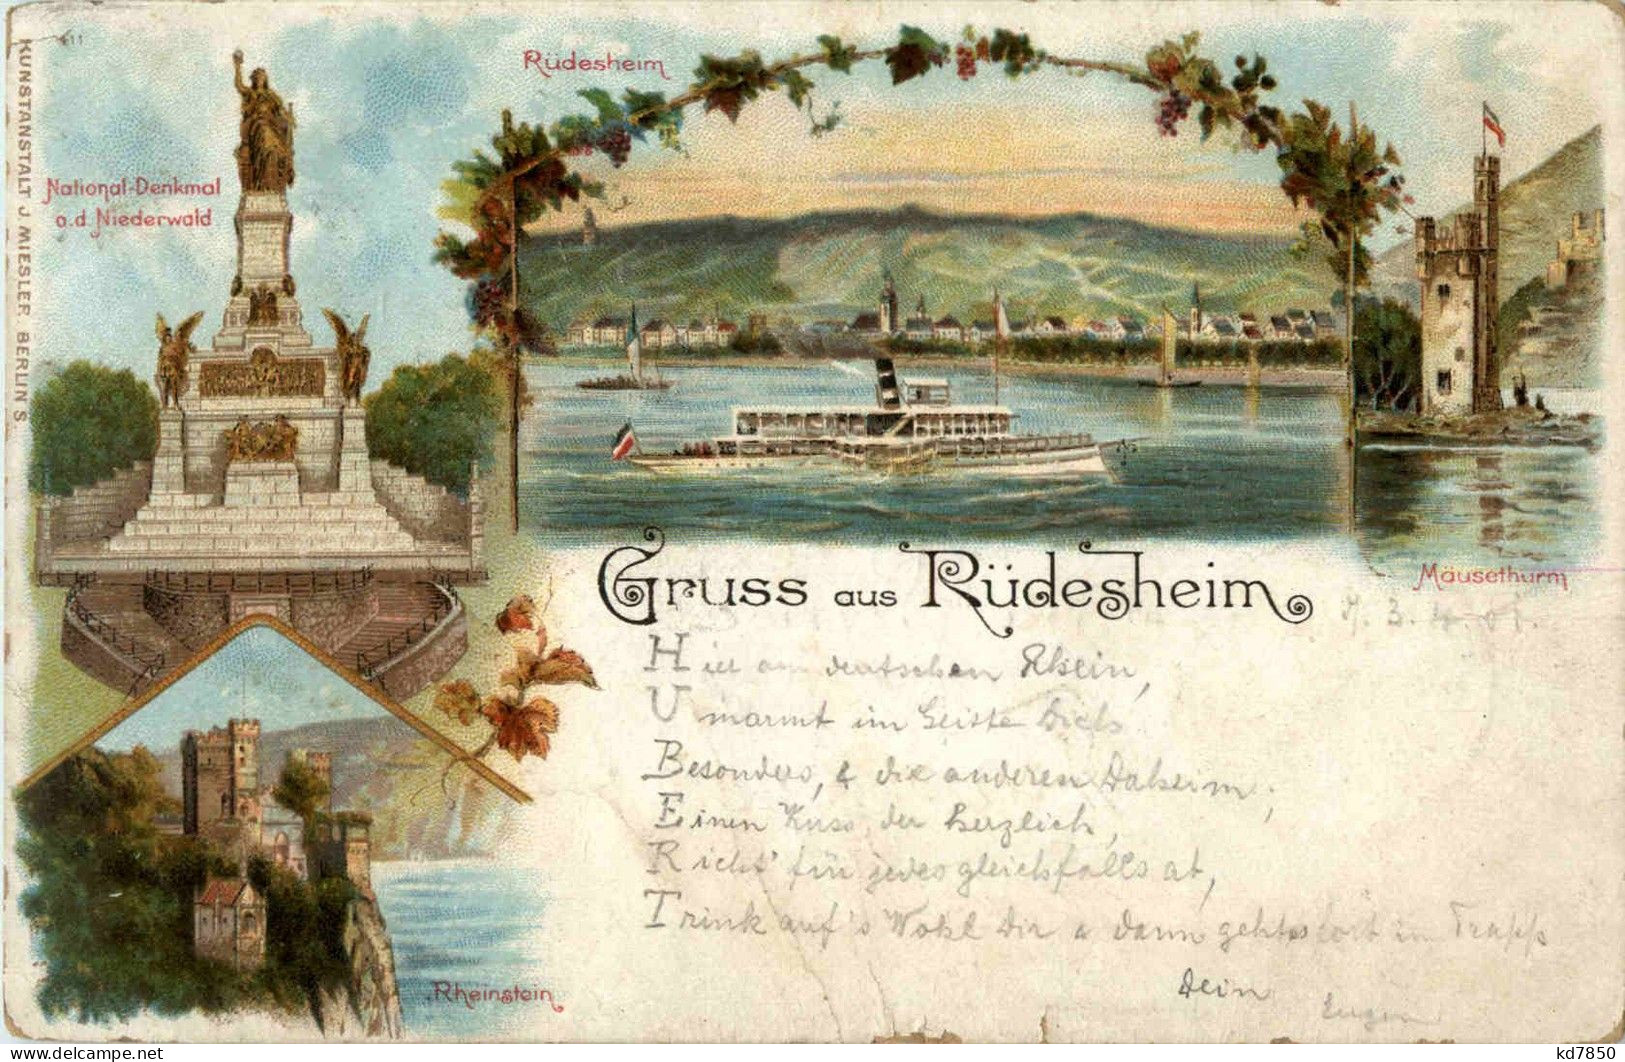 411
KUNSTANSTALT J. MIESLER, BERLIN S
Rüdesheim
National-Denkmal
a.d. Niederwald
Mäusethurm
Gruss aus Rüdesheim
3. 4. 01.
Hier am deutschen Rhein,
Umarmt im Geiste Dich
Besonders, & die anderen Daheim,
Einen Kuss, der herzlich,
Richt' für jedes gleichfalls ab,
Trink auf's Wohl Dir & dann geht's fort im Trapp
Dein
Eugen
Rheinstein
© delcampe.net
kd7850